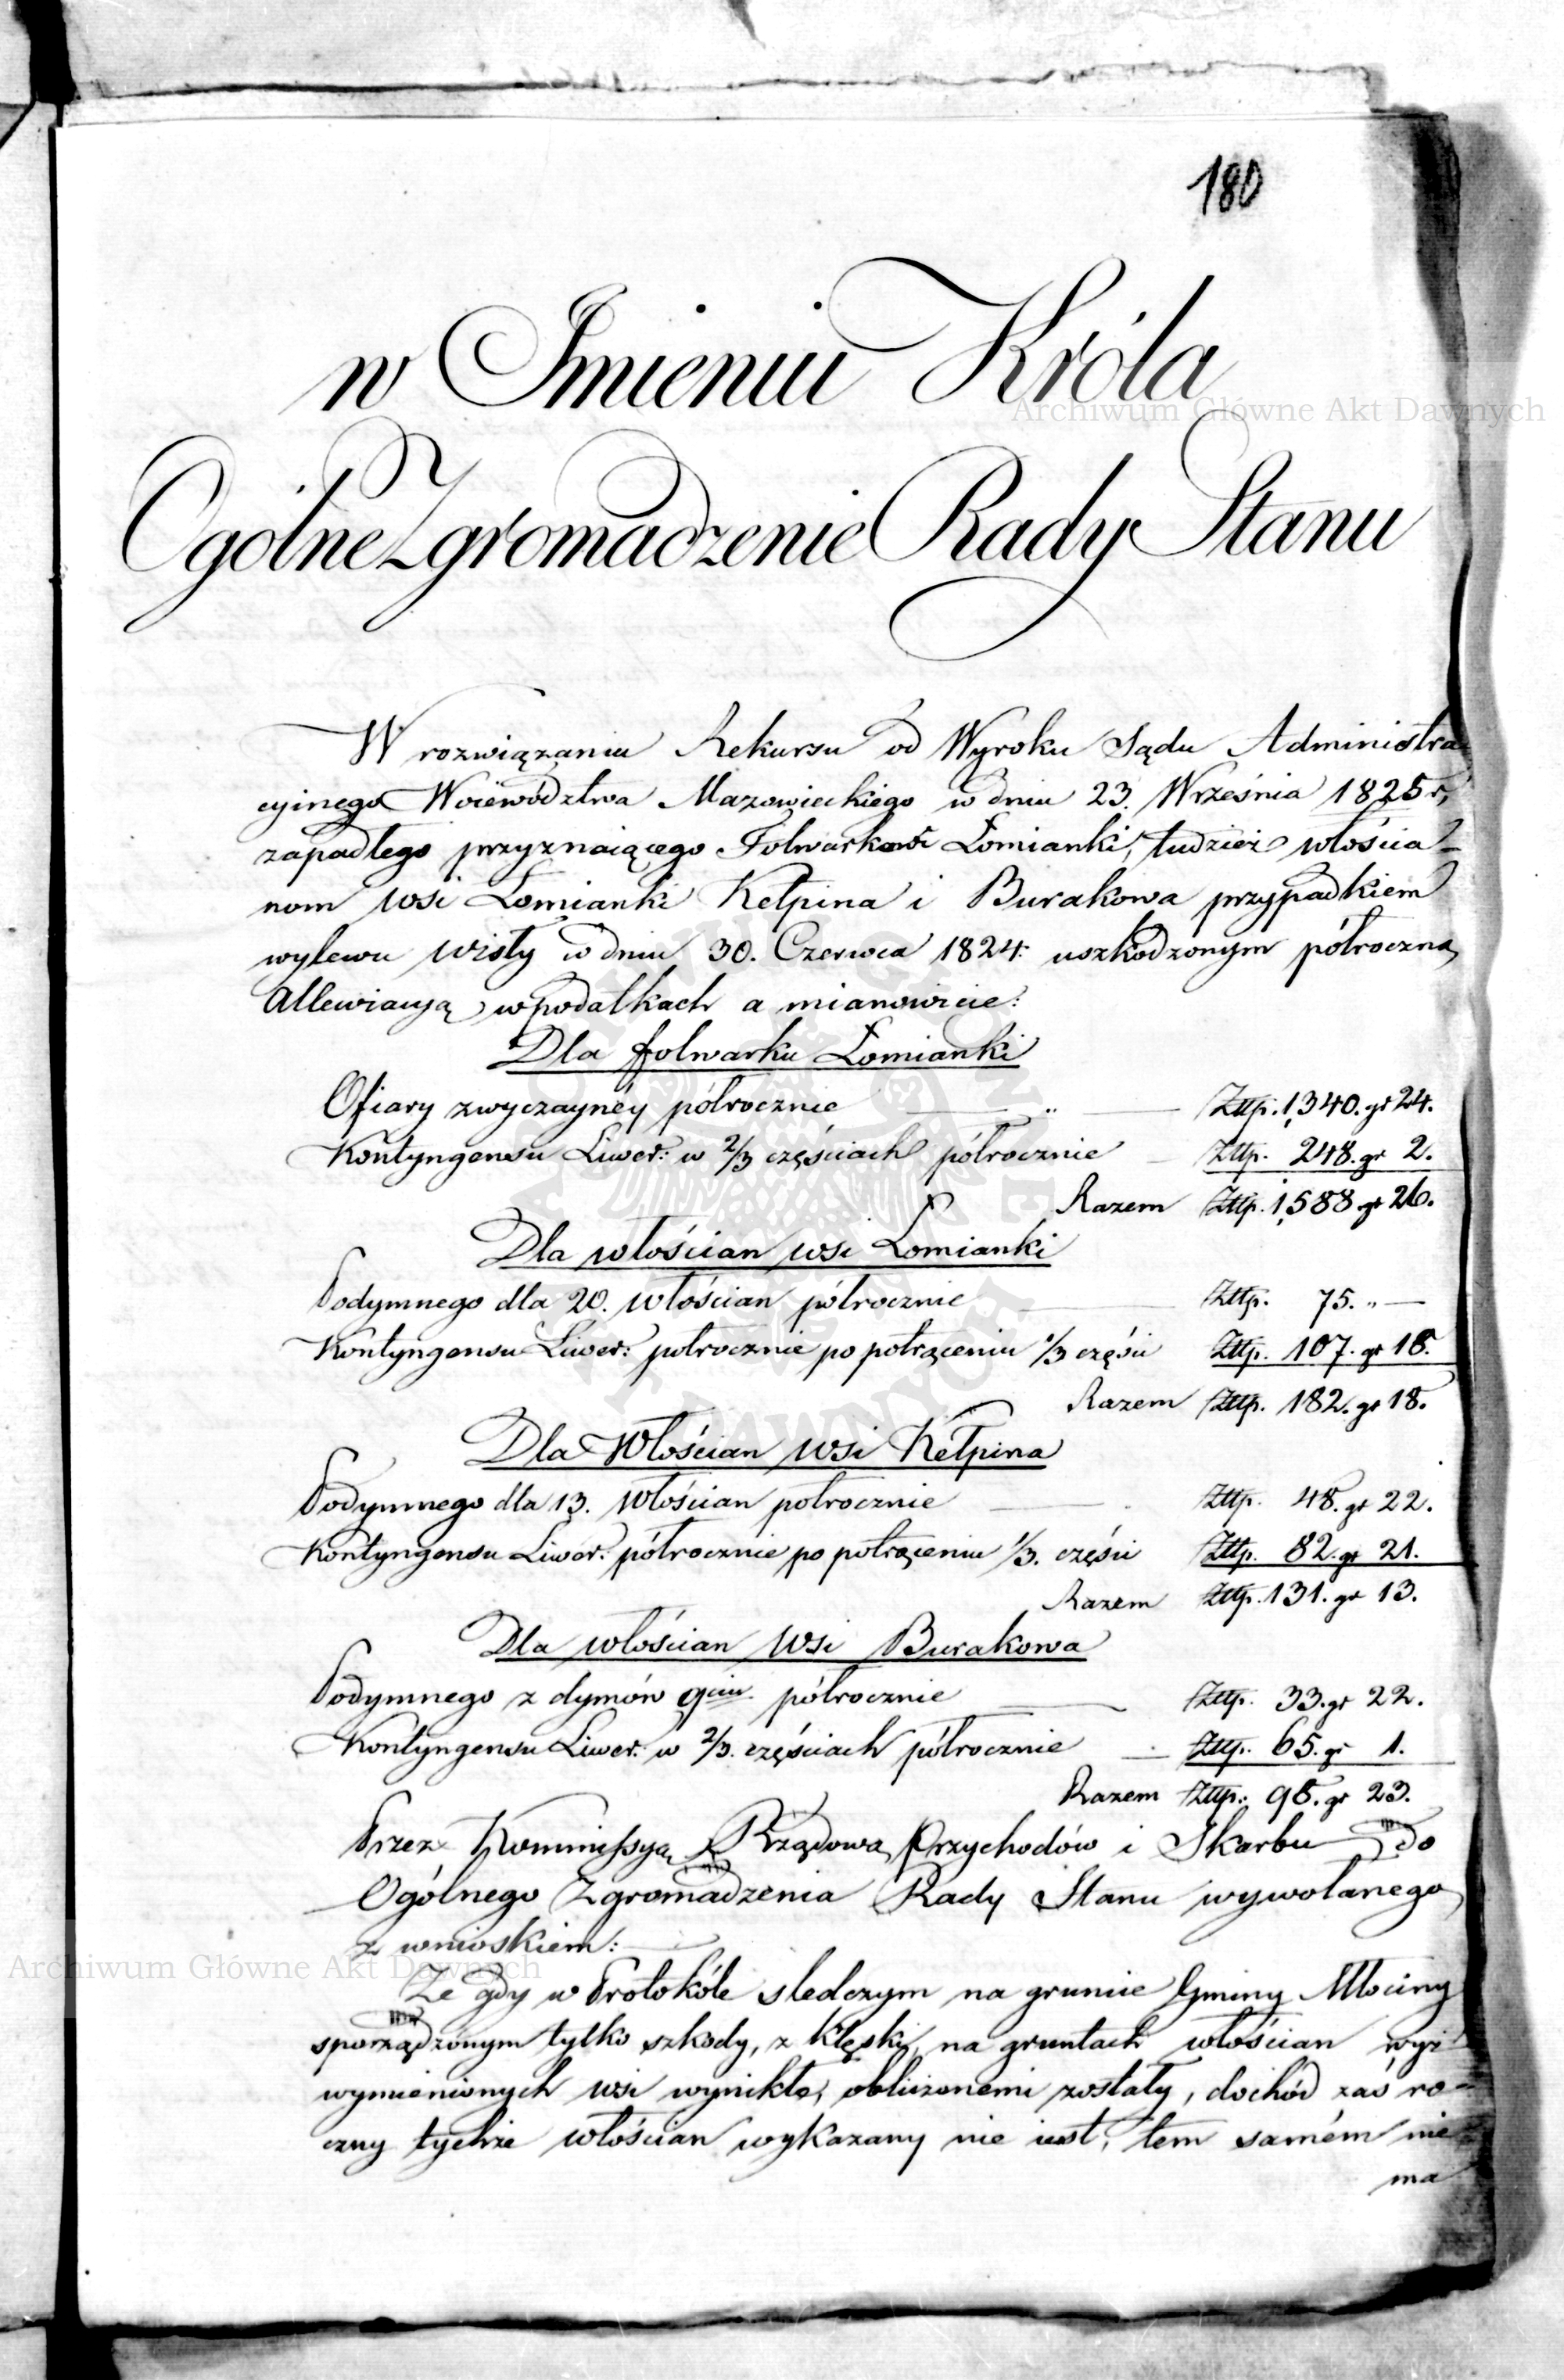 180
w Imieniu Króla
Ogólne Zgromadzenie Rady Stanu
W rozwiązaniu Rekursu od Wyroku Sądu Administra
cyinego Woiewództwa Mazowieckiego w dniu 23. Września 1825 r,
zapadłego przyznaiącego Folwarkowi Łomianki, tudzież włościa-
nom wsi Łomianki Kełpina i Burakowa przypadkiem
wylewu Wisły w dniu 30. Czerwca 1824. uszkodzonym półroczną
Allewiacyą w podatkach a mianowicie:
Dla folwarku Łomianki
Ofiary zwyczaynéy półrocznie — „ — Złtp. 1,340. gr 24.
Kontyngensu Liwer: w 2/3 częściach półrocznie — Złtp. 248. gr 2.
Razem Złtp. 1,588. gr 26.
Dla włościan wsi Łomianki
Podymnego dla 20. włościan półrocznie — Złtp. 75. „ —
Kontyngensu Liwer: półrocznie po potrąceniu 1/3 części Złtp. 107. gr 18.
Razem Złtp. 182. gr 18.
Dla Włościan wsi Kełpina
Podymnego dla 13. Włościan półrocznie — Złtp. 48. gr 22.
Kontyngensu Liwer: półrocznie po potrąceniu 1/3. części Złtp. 82. gr 21.
Razem Złtp. 131. gr 13.
Dla włościan Wsi Burakowa
Podymnego z dymów 9ciu półrocznie — Złtp. 33. gr 22.
Kontyngensu Liwer: w 2/3. częściach półrocznie — Złtp. 65. gr 1.
Razem Złtp: 98. gr 23.
Przez Kommissyą Rządową Przychodów i Skarbu do
Ogólnego Zgromadzenia Rady Stanu wywołanego
z wnioskiem:
Że gdy w Protokóle sledczym na gruncie Gminy Młociny
sporządzonym tylko szkody, z klęski, na gruntach włościan wyż
wymienionych wsi wynikłe, obliczonemi zostały, dochód zaś ro-
czny tychże włościan wykazany nie iest, tem samém nie
ma
Archiwum Główne Akt Dawnych
Archiwum Główne Akt Dawnych